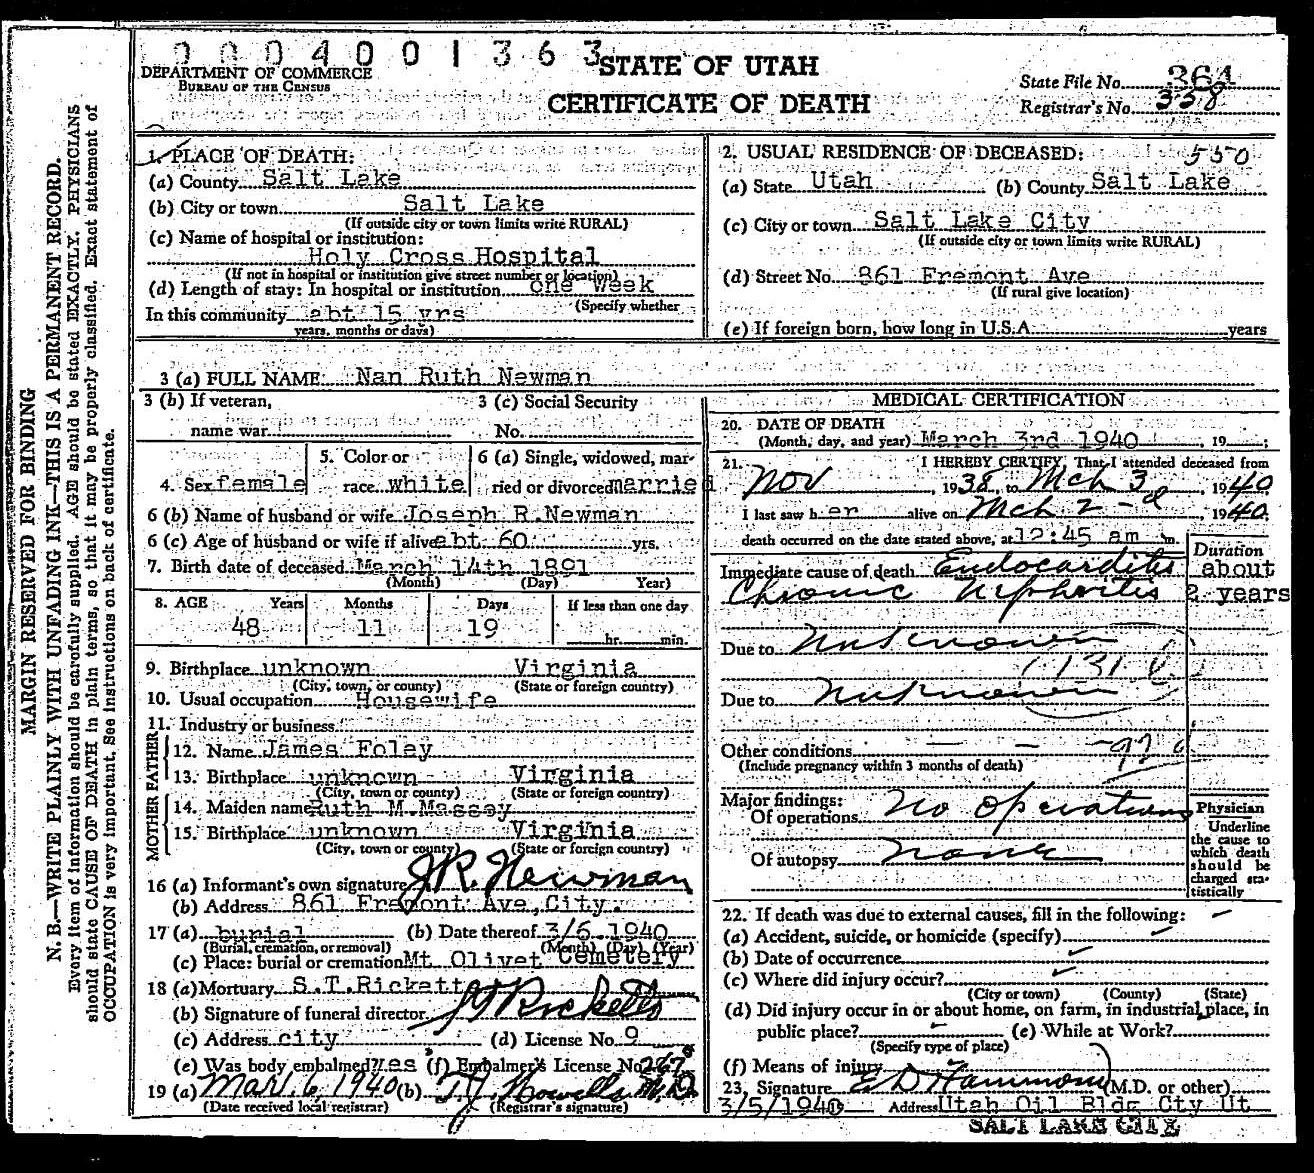 0004001363
DEPARTMENT OF COMMERCE
BUREAU OF THE CENSUS
STATE OF UTAH
CERTIFICATE OF DEATH
State File No. 364
Registrar's No. 338
1. PLACE OF DEATH:
(a) County Salt Lake
(b) City or town Salt Lake
(If outside city or town limits write RURAL)
(c) Name of hospital or institution:
Holy Cross Hospital
(If not in hospital or institution give street number or location)
(d) Length of stay: In hospital or institution one week
(Specify whether
In this community abt 15 yrs
years, months or days)
2. USUAL RESIDENCE OF DECEASED: 550
(a) State Utah (b) County Salt Lake
(c) City or town Salt Lake City
(If outside city or town limits write RURAL)
(d) Street No. 861 Fremont Ave
(If rural give location)
(e) If foreign born, how long in U.S.A. years
3 (a) FULL NAME Nan Ruth Newman
3 (b) If veteran,
name war
3 (c) Social Security
No.
4. Sex female
5. Color or
race white
6 (a) Single, widowed, mar-
ried or divorced married
6 (b) Name of husband or wife Joseph R. Newman
6 (c) Age of husband or wife if alive abt 60 yrs.
7. Birth date of deceased March 14th 1891
(Month) (Day) Year)
8. AGE Years Months Days If less than one day
48 11 19 hr. min.
9. Birthplace unknown Virginia
(City, town, or county) (State or foreign country)
10. Usual occupation Housewife
11. Industry or business
FATHER
12. Name James Foley
13. Birthplace unknown Virginia
(City, town or county) (State or foreign country)
MOTHER
14. Maiden name Ruth M. Massey
15. Birthplace unknown Virginia
(City, town or county) (State or foreign country)
16 (a) Informant's own signature J R. Newman
(b) Address 861 Fremont Ave, City.
17 (a) burial (b) Date thereof 3/6 1940
(Burial, cremation, or removal) (Month) (Day) (Year)
(c) Place: burial or cremation Mt Olivet Cemetery
18 (a) Mortuary S.T. Rickett
(b) Signature of funeral director Ricketts
(c) Address city (d) License No. 9
(e) Was body embalmed? yes (f) Embalmer's License No.
19 (a) Mar. 6, 1940 (b) T.J. Howells M.D.
(Date received local registrar) (Registrar's signature)
MEDICAL CERTIFICATION
20. DATE OF DEATH
(Month, day, and year) March 3rd 1940, 19 ;
21. I HEREBY CERTIFY, That I attended deceased from
Nov, 1938, to Mch 3, 1940
I last saw her alive on Mch 2 - d, 1940.
death occurred on the date stated above, at 12:45 am m.
Duration
Immediate cause of death Endocarditis about
Chronic Nephritis 2 years
Due to Unknown
131 b
Due to Unknown
Other conditions — — 92
(Include pregnancy within 3 months of death)
Major findings:
Of operations No operations
Of autopsy none
Physician
Underline
the cause to
which death
should be
charged sta-
tistically
22. If death was due to external causes, fill in the following: –
(a) Accident, suicide, or homicide (specify)
(b) Date of occurrence
(c) Where did injury occur?
(City or town) (County) (State)
(d) Did injury occur in or about home, on farm, in industrial place, in
public place? (e) While at Work?
(Specify type of place)
(f) Means of injury
23. Signature E D Hammond (M.D. or other)
3/5/1940 Address Utah Oil Bldg Cty Ut
SALT LAKE CITY
MARGIN RESERVED FOR BINDING
N. B.—WRITE PLAINLY WITH UNFADING INK—THIS IS A PERMANENT RECORD.
Every item of information should be carefully supplied. AGE should be stated EXACTLY. PHYSICIANS
should state CAUSE OF DEATH in plain terms, so that it may be properly classified. Exact statement of
OCCUPATION is very important. See instructions on back of certificate.